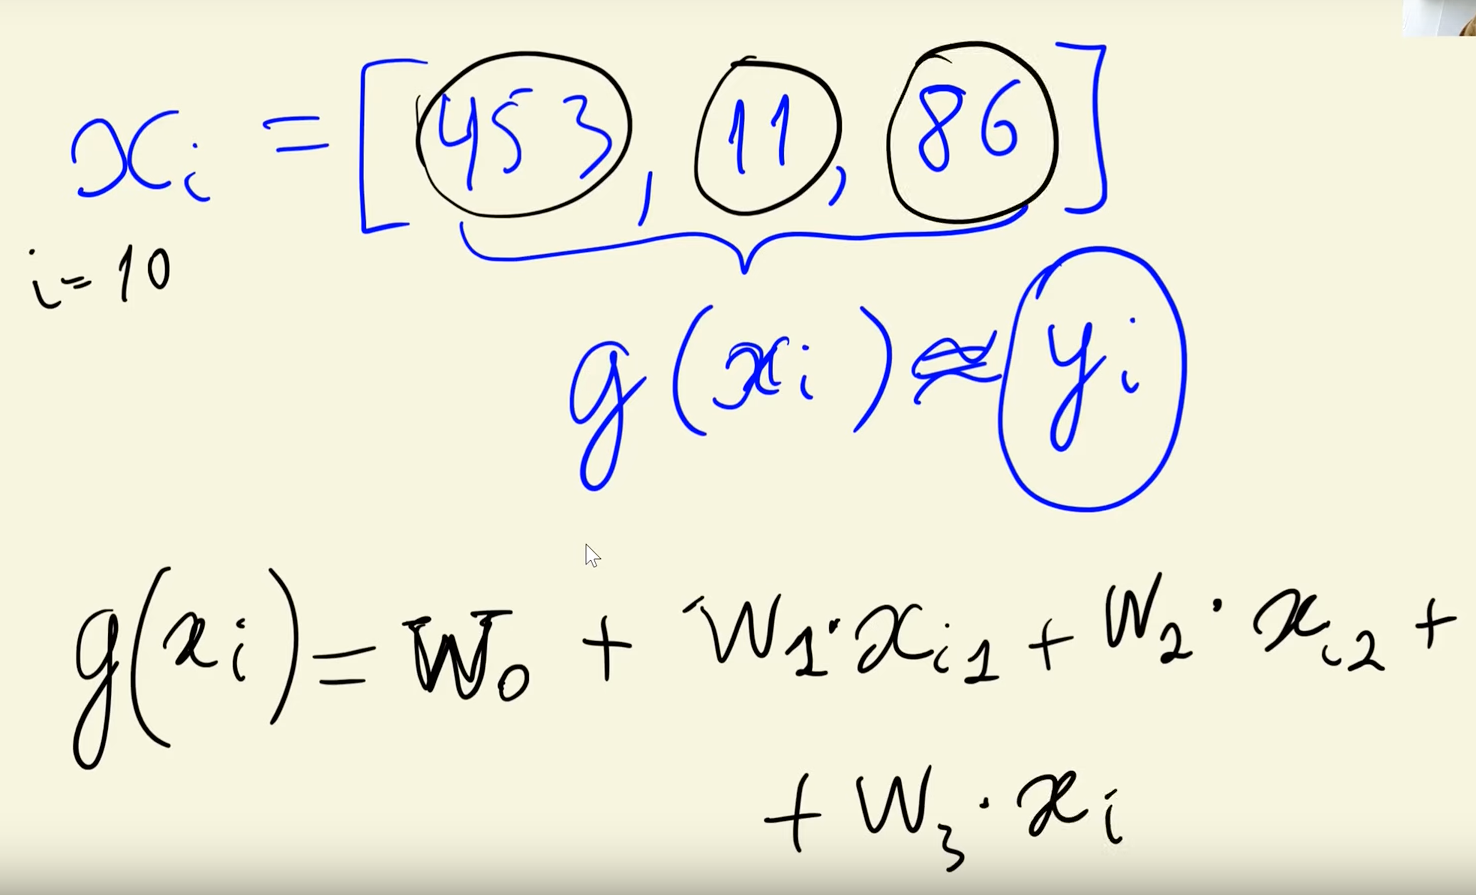 xi = [453, 11, 86]
i=10
g(xi) ≈ yi
g(xi) = W0 + W1·xi1 + W2·xi2 +
+ W3·xi